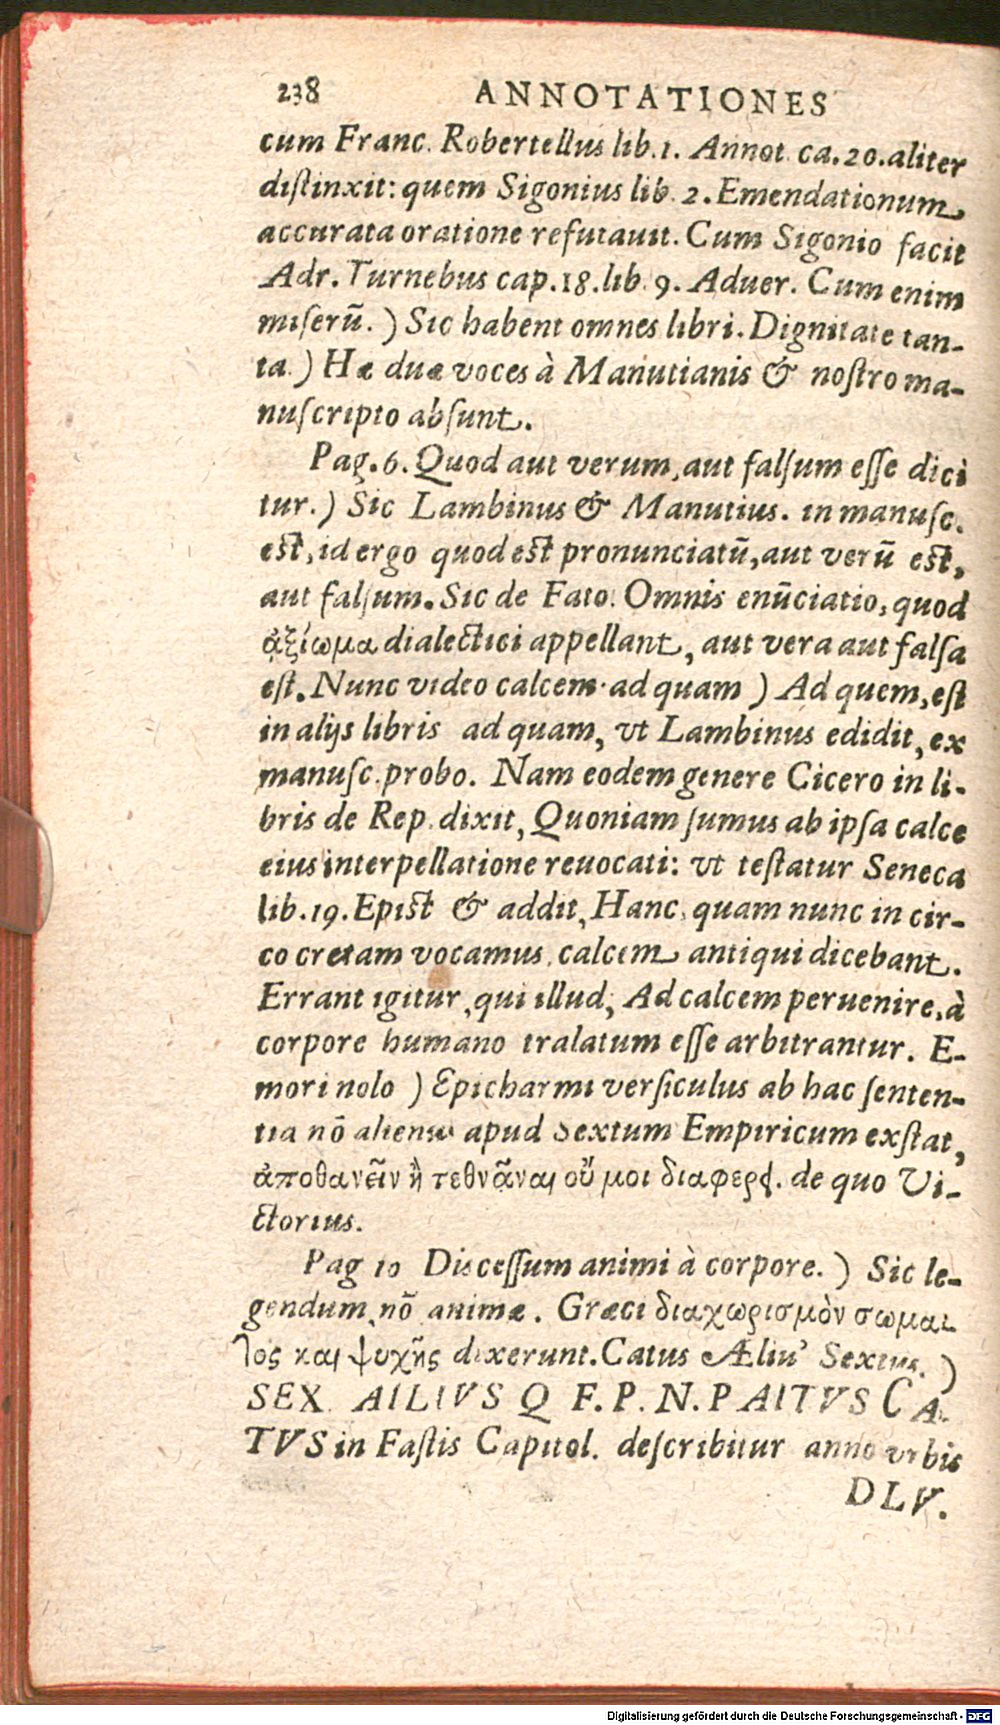 238 ANNOTATIONES
cum Franc. Robertellus lib. 1. Annot. ca. 20. aliter
distinxit: quem Sigonius lib. 2. Emendationum
accurata oratione refutauit. Cum Sigonio facit
Adr. Turnebus cap. 18. lib. 9. Aduer. Cum enim
miserū. ) Sic habent omnes libri. Dignitate tan-
ta. ) Hæ duæ voces à Manutianis & nostro ma-
nuscripto absunt.
Pag. 6. Quod aut verum, aut falsum esse dici
tur. ) Sic Lambinus & Manutius. in manusc.
est, id ergo quod est pronunciatū, aut verū est,
aut falsum. Sic de Fato. Omnis enūciatio, quod
ἀξίωμα dialectici appellant, aut vera aut falsa
est. Nunc video calcem· ad quam ) Ad quem, est
in alijs libris ad quam, vt Lambinus edidit, ex
manusc. probo. Nam eodem genere Cicero in li-
bris de Rep. dixit, Quoniam sumus ab ipsa calce
eius interpellatione reuocati: vt testatur Seneca
lib. 19. Epist & addit, Hanc, quam nunc in cir-
co cretam vocamus, calcem antiqui dicebant.
Errant igitur, qui illud, Ad calcem peruenire, à
corpore humano tralatum esse arbitrantur. E-
mori nolo ) Epicharmi versiculus ab hac senten-
tia nō alienus apud Sextum Empiricum exstat,
ἀποθανεῖν ἢ τεθνᾶναι οὔ μοι διαφερει. de quo Vi-
ctorius.
Pag 10 Discessum animi à corpore. ) Sic le-
gendum, nō animæ. Græci διαχωρισμὸν σώμα
τος και ψυχῆς dixerunt. Catus Æliu' Sextus. )
SEX. AILIVS Q F. P. N. P AITVS CA-
TVS in Fastis Capitol. describitur anno vrbis
DLV.
Digitalisierung gefördert durch die Deutsche Forschungsgemeinschaft - DFG